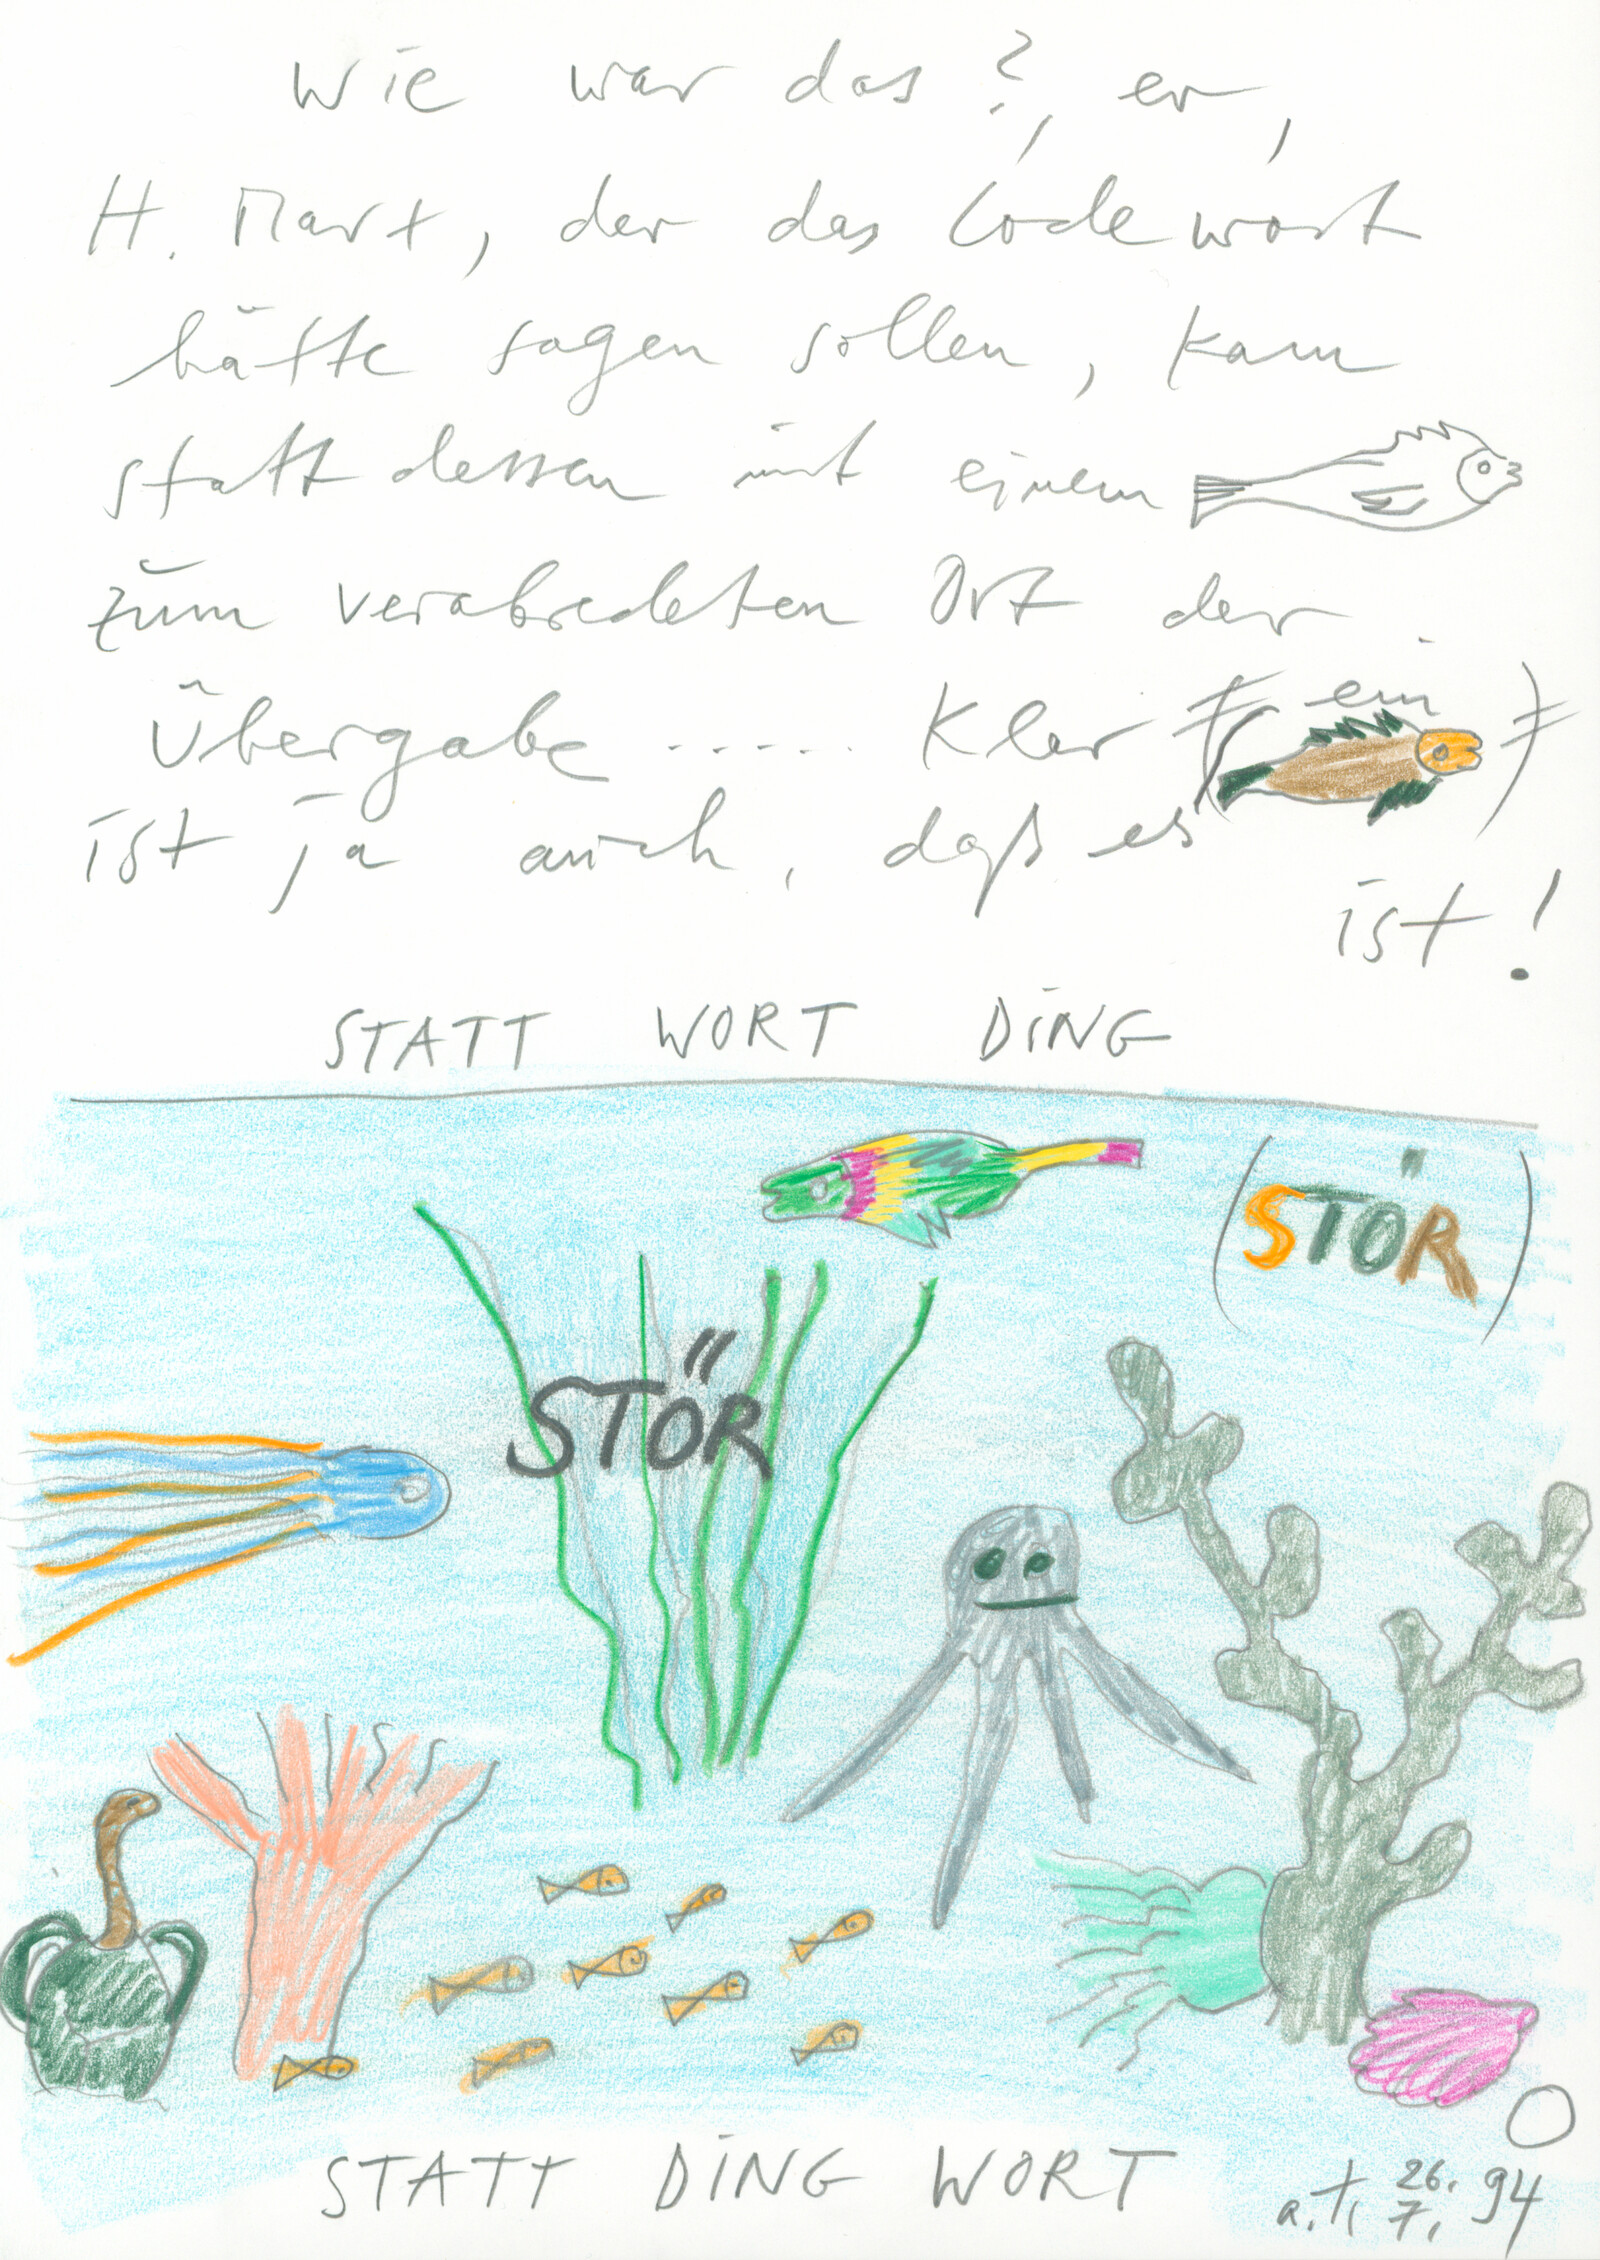 Wie war das?, er,
H. Marx, der das Codewort
hätte sagen sollen, kam
stattdessen mit einem
zum verabredeten Ort der
Übergabe ...... Klar
ist ja auch, daß es (≠ ein ≠)
ist!
STATT WORT DING
(STÖR)
STÖR
STATT DING WORT
a.t. 26. 7. 94